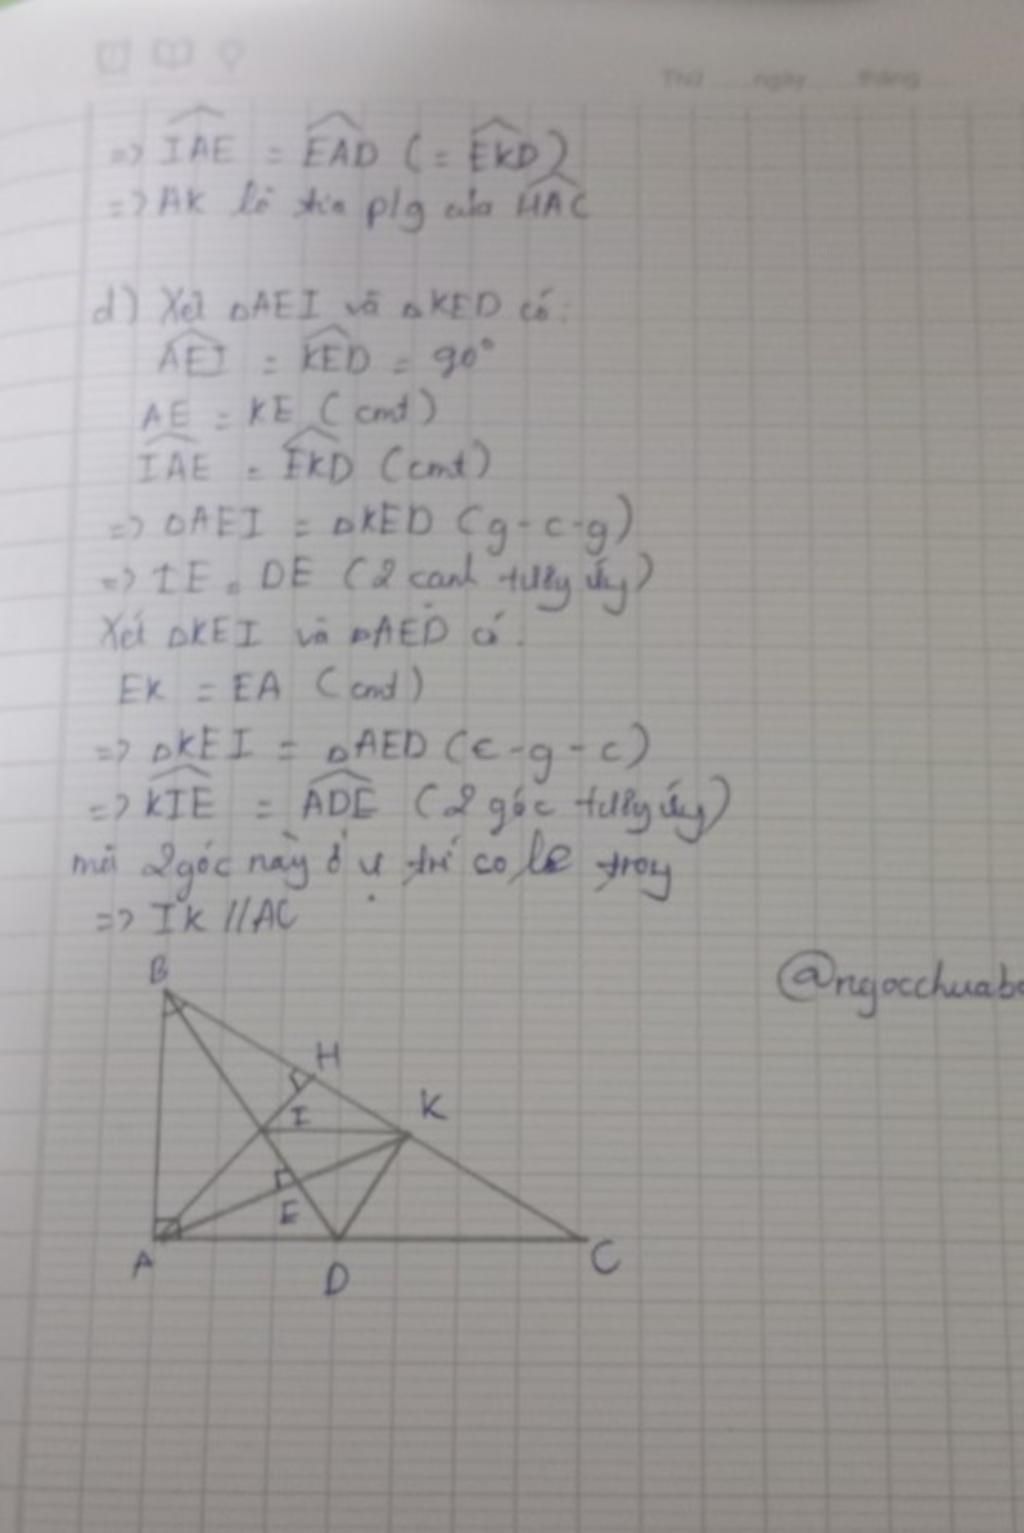 Thứ ngày tháng
=> IAE = EAD (= EKD)
=> AK là tia p/g của HAC
d) Xét ΔAEI và ΔKED có:
AEI = KED = 90°
AE = KE (cmt)
IAE = EKD (cmt)
=> ΔAEI = ΔKED (g-c-g)
=> IE = DE (2 cạnh tương ứng)
Xét ΔKEI và ΔAED có:
EK = EA (cmt)
=> ΔKEI = ΔAED (c-g-c)
=> KIE = ADE (2 góc tương ứng)
mà 2 góc này ở vị trí so le trong
=> IK // AC
B
@ngocchuabo
H
K
I
E
A
D
C